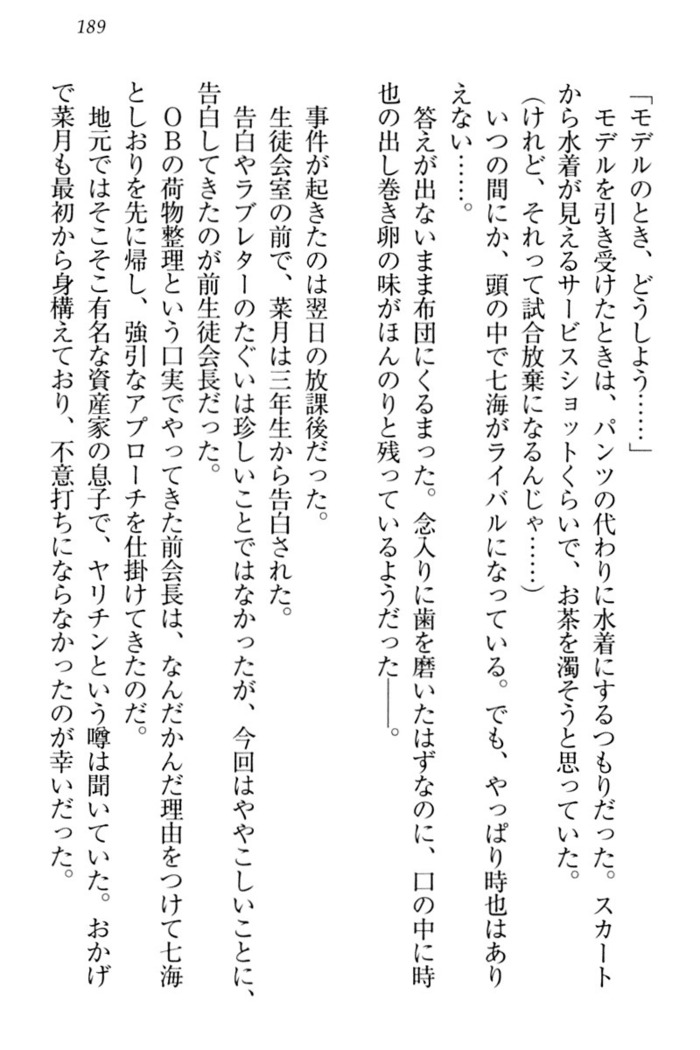 189
「モデルのとき、どうしよう……」
モデルを引き受けたときは、パンツの代わりに水着にするつもりだった。スカート
から水着が見えるサービスショットくらいで、お茶を濁そうと思っていた。
(けれど、それって試合放棄になるんじゃ……)
いつの間にか、頭の中で七海がライバルになっている。でも、やっぱり時也はあり
えない……。
答えが出ないまま布団にくるまった。念入りに歯を磨いたはずなのに、口の中に時
也の出し巻き卵の味がほんのりと残っているようだった――。
事件が起きたのは翌日の放課後だった。
生徒会室の前で、菜月は三年生から告白された。
告白やラブレターのたぐいは珍しいことではなかったが、今回はややこしいことに、
告白してきたのが前生徒会長だった。
ＯＢの荷物整理という口実でやってきた前会長は、なんだかんだ理由をつけて七海
としおりを先に帰し、強引なアプローチを仕掛けてきたのだ。
地元ではそこそこ有名な資産家の息子で、ヤリチンという噂は聞いていた。おかげ
で菜月も最初から身構えており、不意打ちにならなかったのが幸いだった。